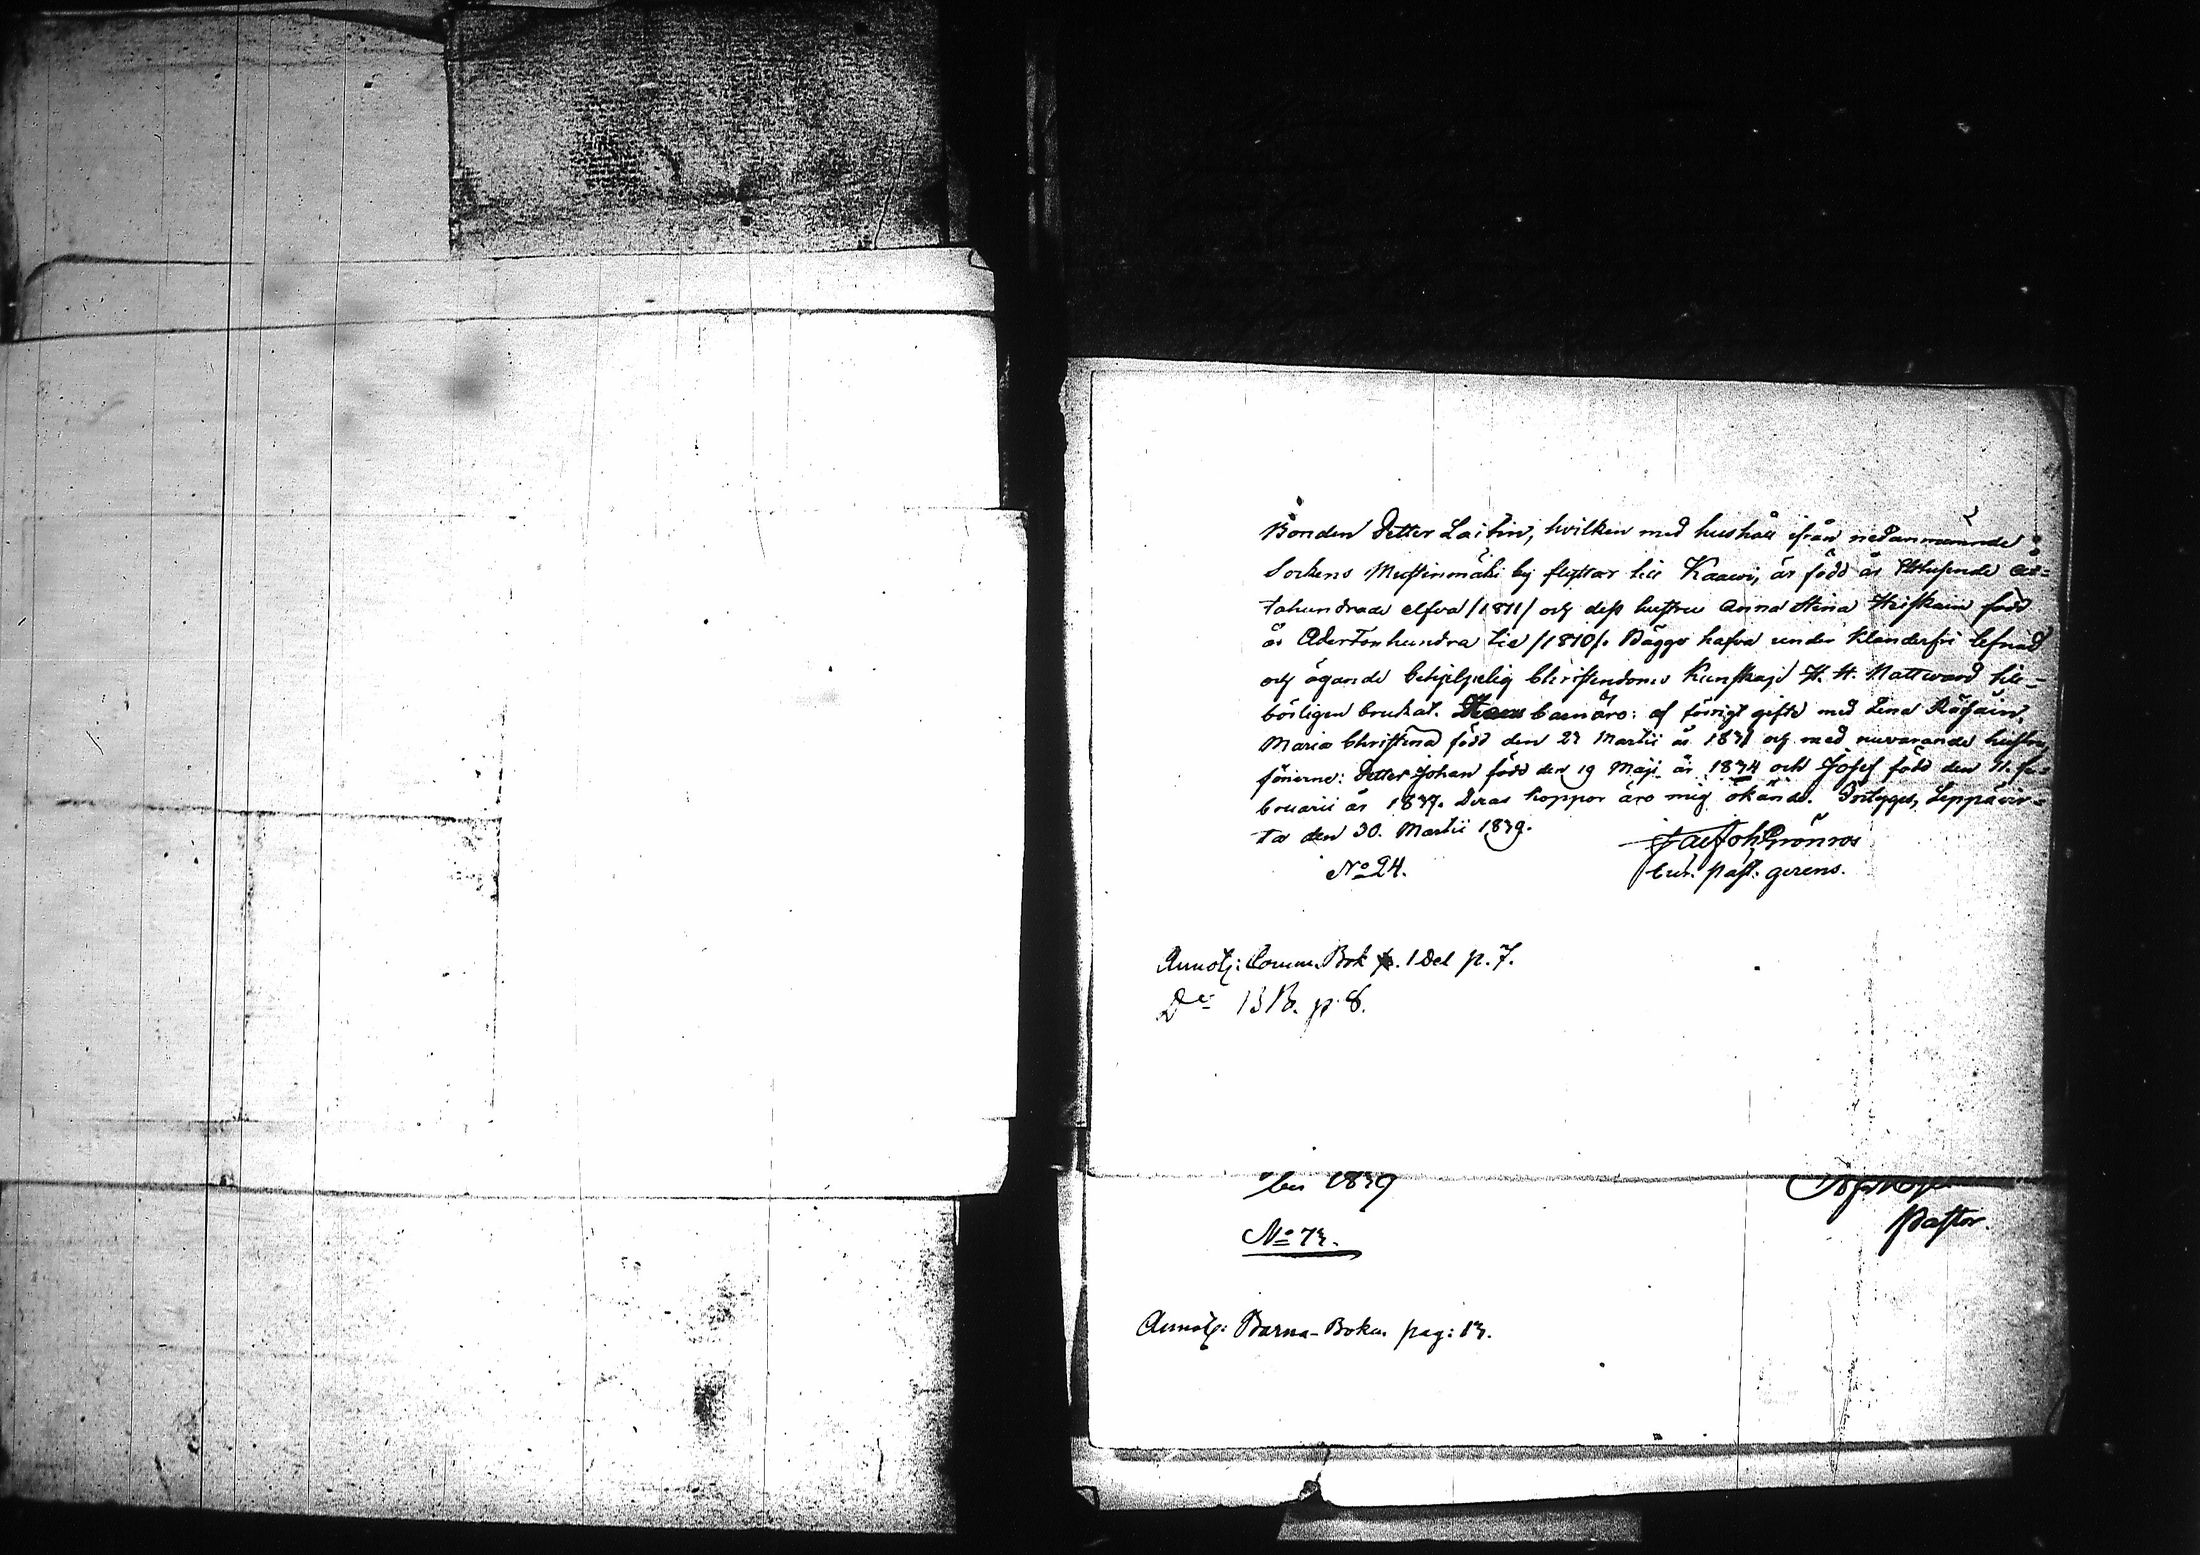 Bonden Petter Laitin, hvilken med hushåll ifrån nedannämnde
Sockens Mustinmäki by flyttar till Kaawi, är född år Ettusende at=
tahundrade elfva /1811/ och dess hustru Anna Stina Heiskain född
år Adertonhundra tio /1810/. Bägge hafva under klanderfri lefnad
och ägande behjelpelig Christendoms Kunskap H. H. Nattward till=
börligen brukat. barn äro: af förrigt gifte med Lena Räsäin,
Maria Christina född den 27 Martii år 1831 och med nuvarande hustru
sönerne: Petter Johan född den 19 Maji år 1834 och Josef född den 11. Fe=
bruarii år 1837. Deras koppor äro mig okände. Betyges, Leppävir=
ta den 30. Martii 1839.
Jac Joh Grönroos
cur. past. gerens.
No 24.
Annot: Comm. Bok 1 Del p. 7.
Do B. p. 8.
1839
Pastor.
No 73.
Annot: Barna-Boken pag: 13.